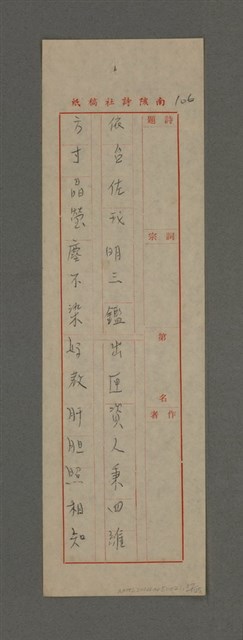 南陔詩社稿紙
106
詩題
詞宗
第 名
作者
依台佐我明三鑑出匣資人秉四維
方寸晶瑩塵不染好教肝胆照相知